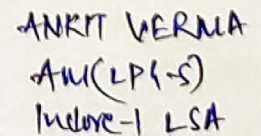 ANKIT VERMA
AM(LPG-S)
Indore-1 LSA